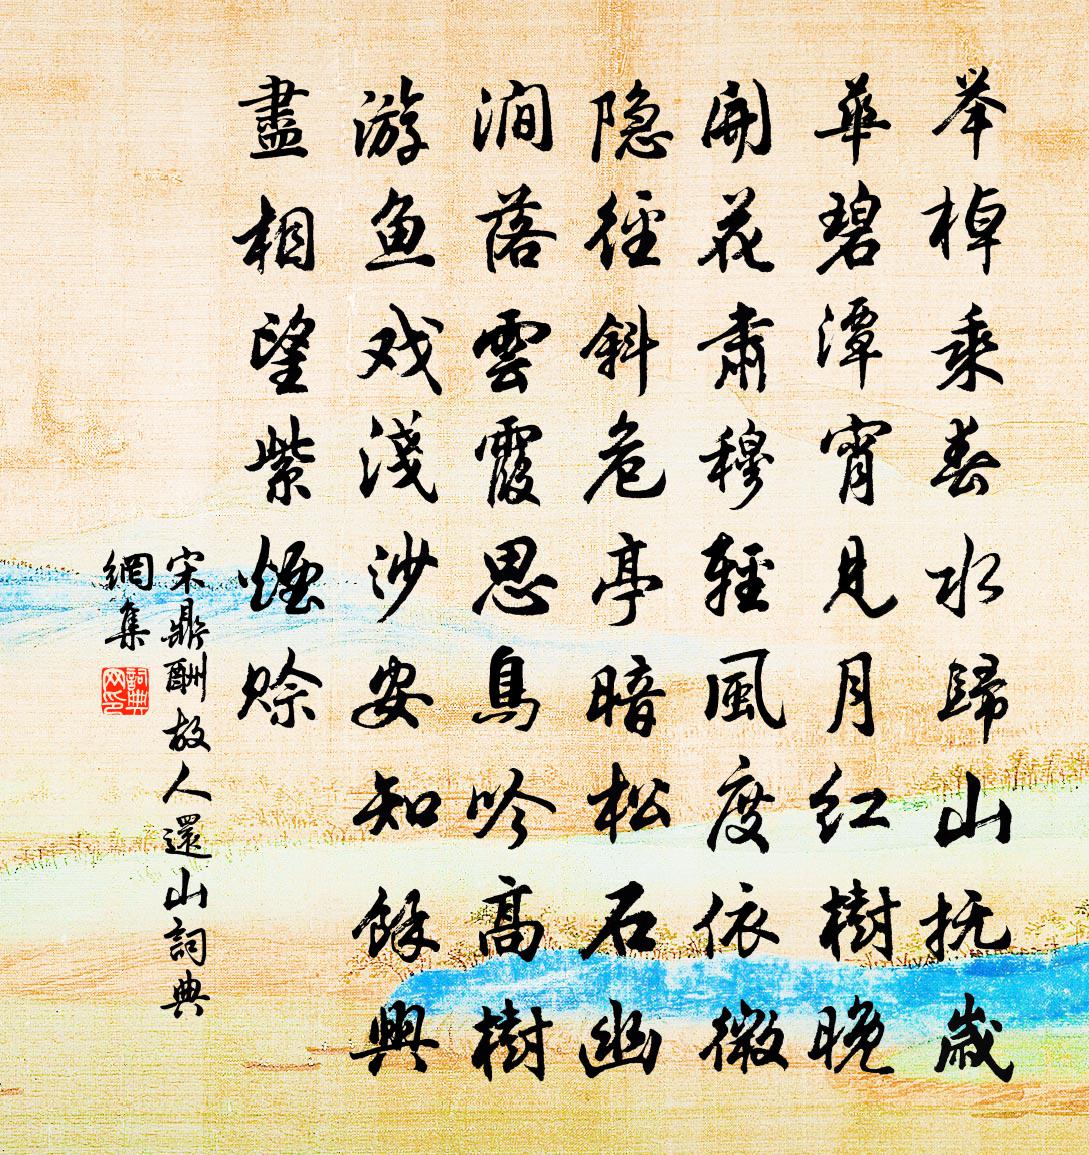 举棹乘春水歸山抚歲
華碧潭宵見月红樹晚
開花肅穆輕風度依微
隐徑斜危亭暗松石幽
澗落雲霞思鳥吟高樹
游鱼戏淺沙安知餘興
盡相望紫煙賒
宋鼎酬故人還山詞典
網集
詞典
网印